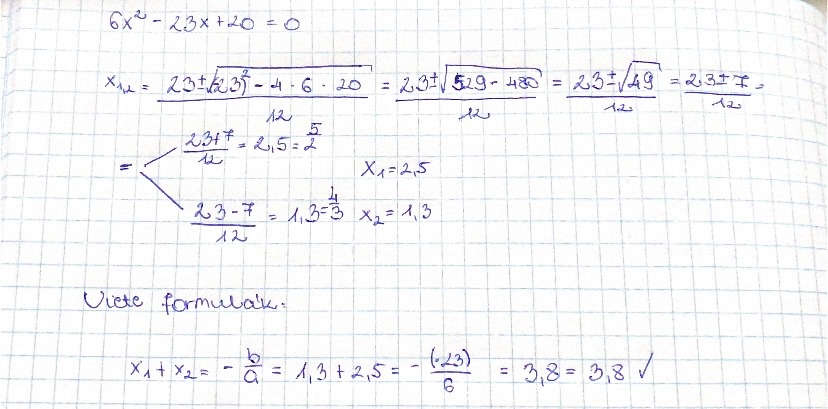 6x² - 23x + 20 = 0
x₁,₂ = (23 ± √((-23)² - 4 · 6 · 20))/12 = (23 ± √(529 - 480))/12 = (23 ± √49)/12 = (23 ± 7)/12 =
= (23+7)/12 = 2,5 = 5/2
x₁ = 2,5
(23-7)/12 = 1,3 = 4/3 x₂ = 1,3
Viete formulák:
x₁ + x₂ = - b/a = 1,3 + 2,5 = - (-23)/6 = 3,8 = 3,8 ✓